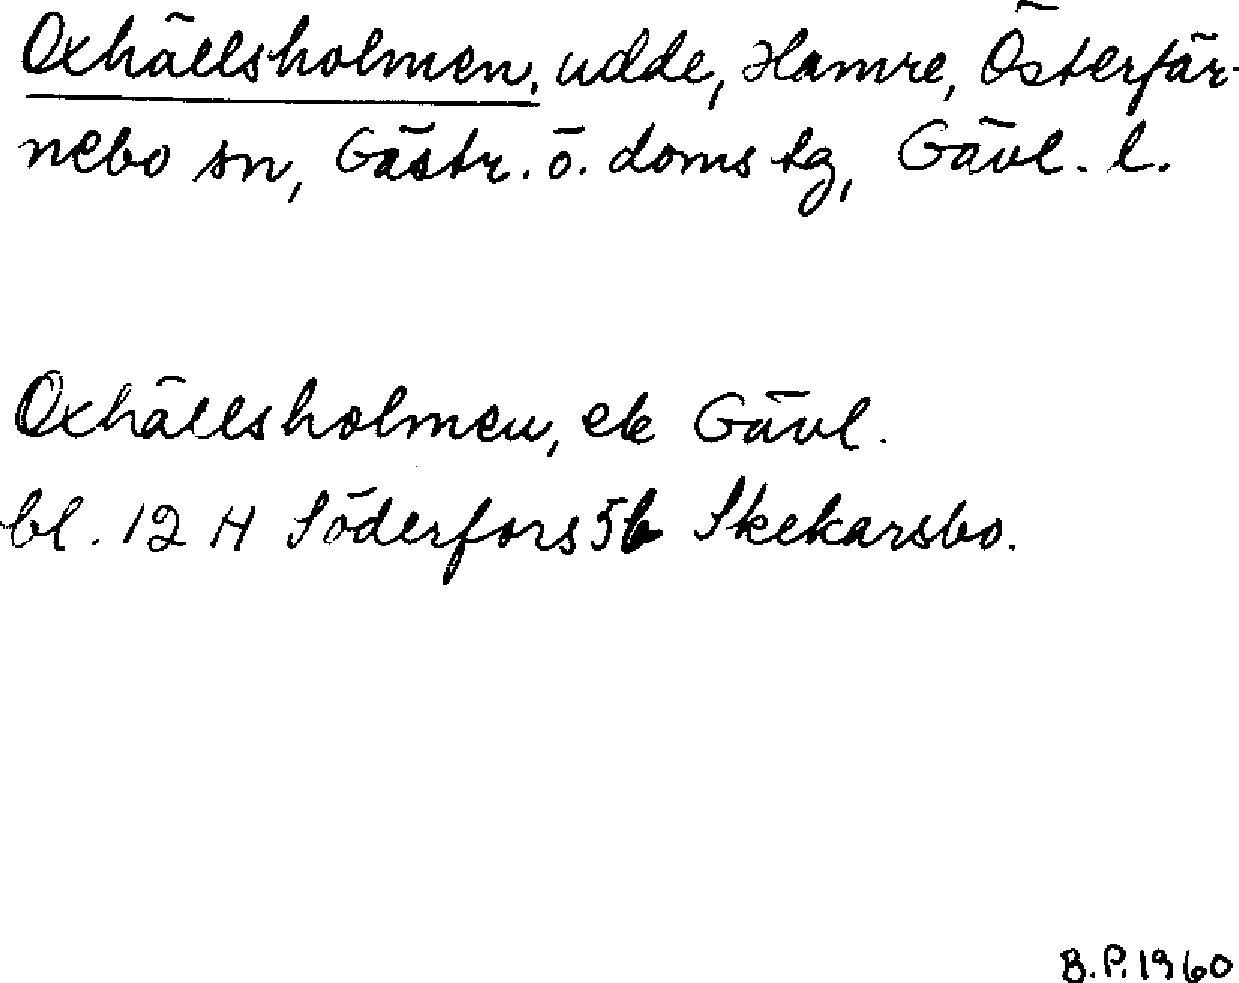 Oxhällsholmen, udde, Hamre, Österfär-
nebo sn, Gästr. ö. doms tg, Gävl. l.
Oxhällsholmen, ek Gävl.
bl. 12 H Söderfors 5b Skekarsbo.
B.P. 1960